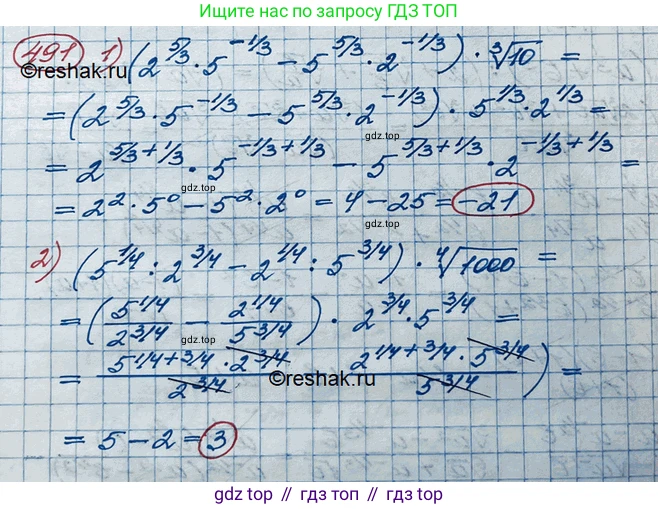 Ищите по запросу ГДЗ ТОП
491 1) (2^{5/3} · 5^{-1/3} - 5^{5/3} · 2^{-1/3}) · ∛10 =
©reshak.ru
= (2^{5/3} · 5^{-1/3} - 5^{5/3} · 2^{-1/3}) · 5^{1/3} · 2^{1/3} =
gdz.top
= 2^{5/3+1/3} · 5^{-1/3+1/3} - 5^{5/3+1/3} · 2^{-1/3+1/3} =
gdz.top
= 2² · 5⁰ - 5² · 2⁰ = 4 - 25 = -21
gdz.top
2) (5^{1/4} : 2^{3/4} - 2^{1/4} : 5^{3/4}) · ∜1000 =
= (5^{1/4}/2^{3/4} - 2^{1/4}/5^{3/4}) · 2^{3/4} · 5^{3/4} =
gdz.top
= 5^{1/4+3/4} · 2^{3/4}/2^{3/4} 2^{1/4+3/4} · 5^{3/4}/5^{3/4}) =
©reshak.ru
= 5 - 2 = 3
gdz top // гдз топ // gdz top